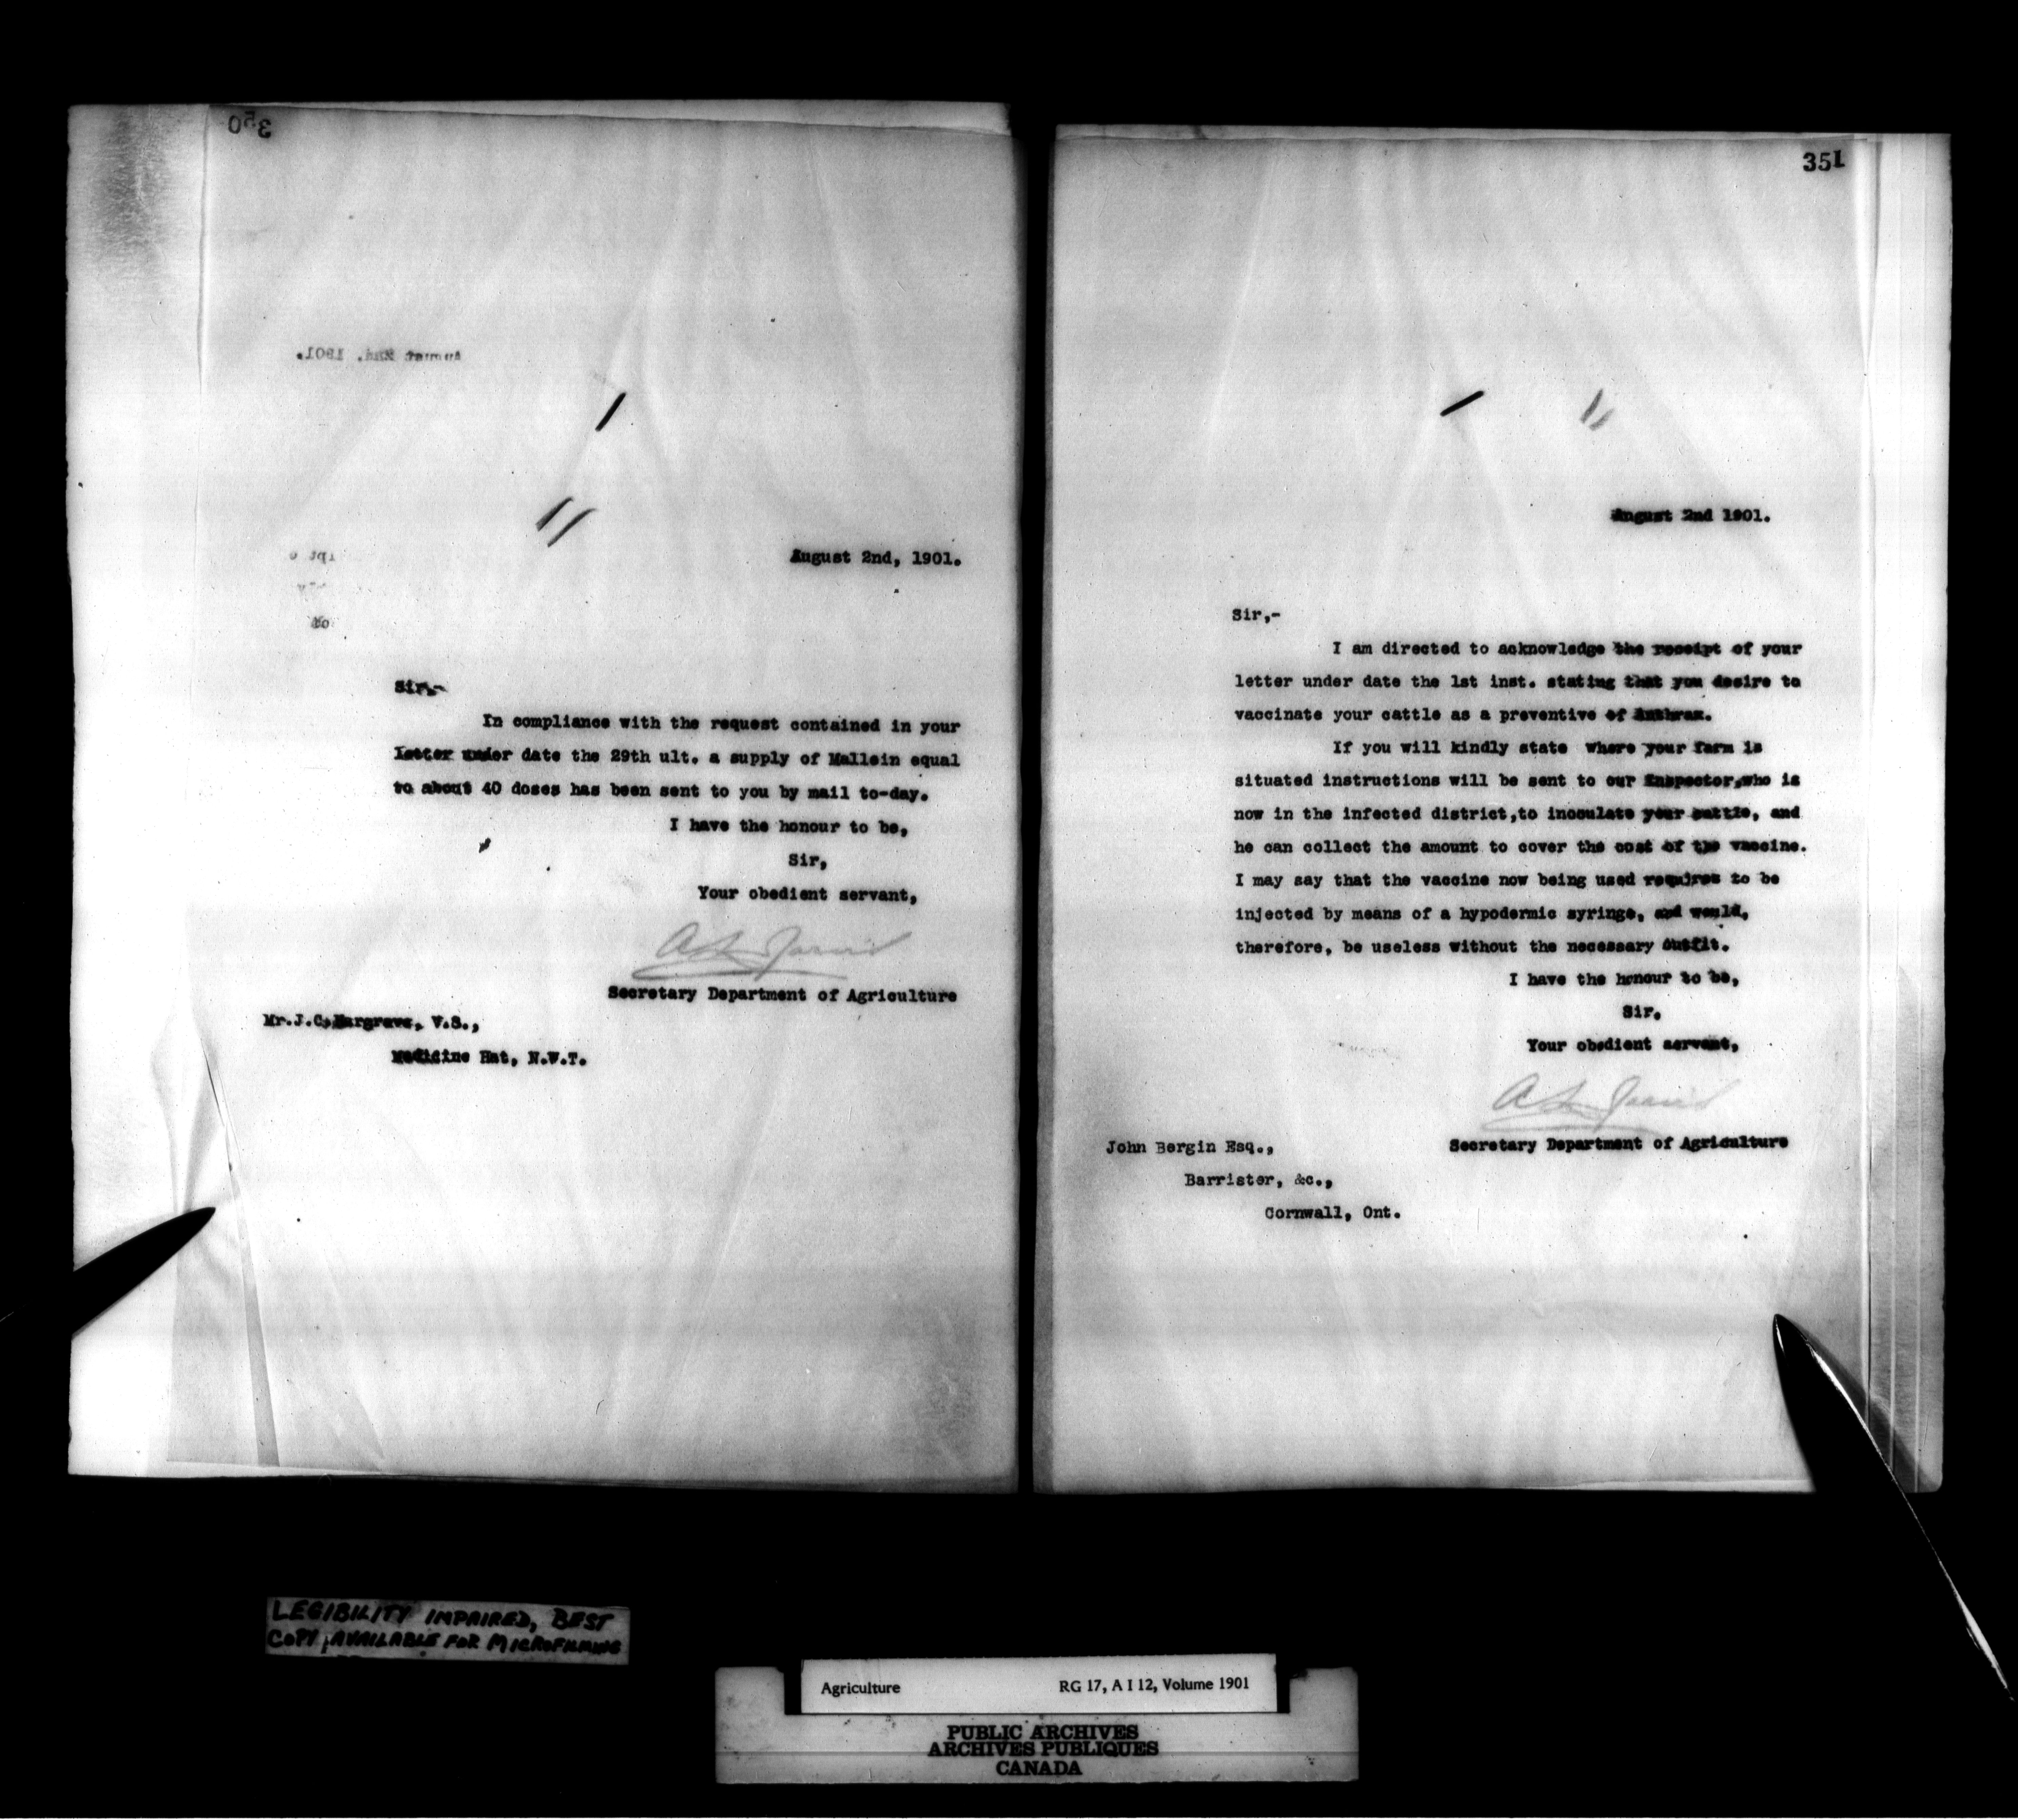 350
August 2nd, 1901.
August 2nd, 1901.
Sir,-
In compliance with the request contained in your
letter under date the 29th ult. a supply of Mallein equal
to about 40 doses has been sent to you by mail to-day.
I have the honour to be,
Sir,
Your obedient servant,
Secretary Department of Agriculture
Mr.J.C.Hargrave, V.S.,
Medicine Hat, N.W.T.
351
August 2nd 1901.
Sir,-
I am directed to acknowledge the receipt of your
letter under date the 1st inst. stating that you desire to
vaccinate your cattle as a preventive of Anthrax.
If you will kindly state where your farm is
situated instructions will be sent to our Inspector,who is
now in the infected district,to inoculate your cattle, and
he can collect the amount to cover the cost of the vaccine.
I may say that the vaccine now being used requires to be
injected by means of a hypodermic syringe, and would,
therefore, be useless without the necessary outfit.
I have the honour to be,
Sir.
Your obedient servant,
Secretary Department of Agriculture
John Bergin Esq.,
Barrister, &c.,
Cornwall, Ont.
LEGIBILITY IMPAIRED, BEST
COPY AVAILABLE FOR MICROFILMING
Agriculture RG 17, A I 12, Volume 1901
PUBLIC ARCHIVES
ARCHIVES PUBLIQUES
CANADA